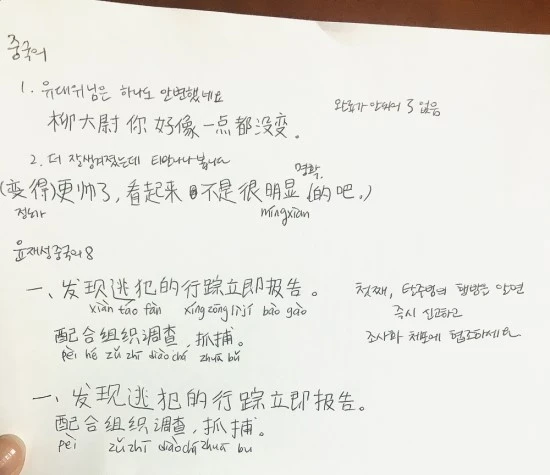 중국어
1. 유대위님은 하나도 안변했네요
柳大尉你好像一点都没变。
완료가 안되어 了 없음
2. 더 잘생겨졌는데 티안나나 봅니다
명확.
(变得)更帅了,看起来不是很明显(的吧。)
정도가
míngxian
윤재성중국어 8
一、发现逃犯的行踪立即报告。
xiàn táo fàn xíng zōng lì jí bào gào
配合组织调查,抓捕。
pèi hé zǔ zhī diào chá zhuā bǔ
첫째, 탈주범의 행방을 알면
즉시 신고하고
조사와 체포에 협조하세요
一、发现逃犯的行踪立即报告。
配合组织调查,抓捕。
pèi zǔ zhī diào chá zhuā bu